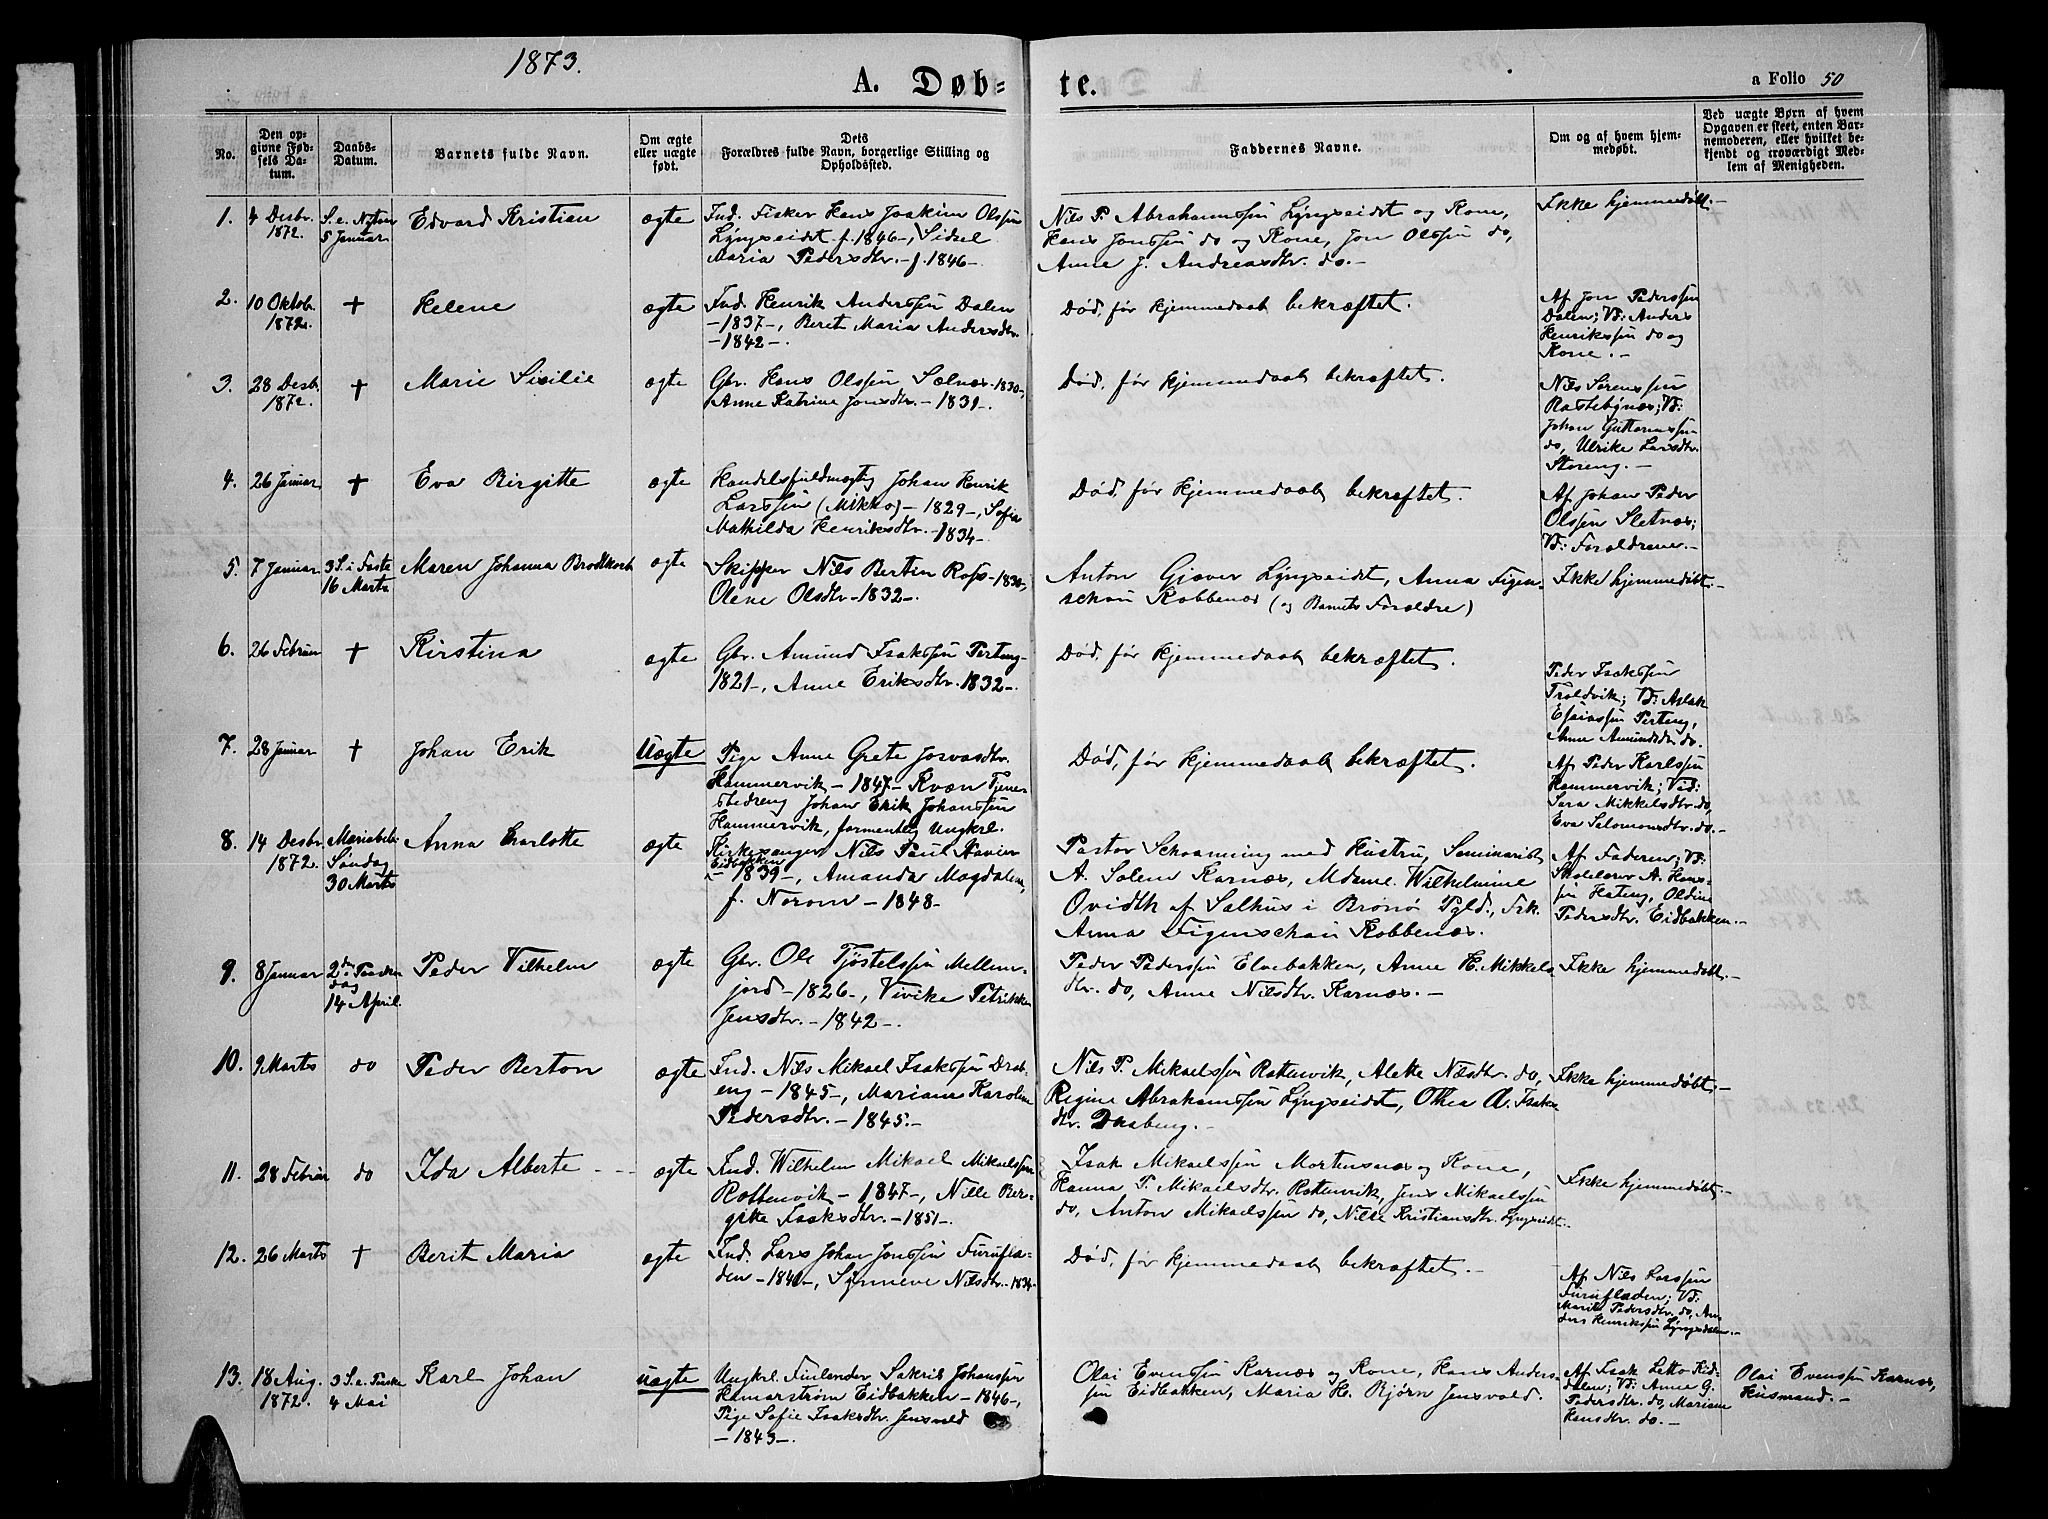 1873.
A. Døb-
te.
a Folio 50
No.
Den op-
givne Fød-
sels Da-
tum.
Daabs-
Datum.
Barnets fulde Navn.
Om ægte
eller uægte
født.
Dets
Forældres fulde Navn, borgerlige Stilling og
Opholdssted.
Faddernes Navne.
Om og af hvem hjem-
medøbt.
Ved uægte Børn af hvem
Opgaven er skeet, enten Bar-
nemoderen, eller hvilket be-
kjendt og troværdigt Med-
lem af Menigheden.
1.
4 Desbr.
1872.
S. e. Nytaar
5 Januar
Edvard Kristian
ægte
Ind. Fisker Hans Joakim Olssøn
Lyngseidet f. 1846-, Sidsel
Maria Pedersdtr. - f. 1846-
Nils P. Abrahamssøn Lyngseidet og Kone,
Hans Jonssøn do og Kone, Jon Olssøn do,
Anne J. Andreasdtr. do. -
Ikke hjemmedøbt. -
2.
10 Oktob.
1872.
†
Helene
ægte
Ind. Henrik Anderssøn Dalen
- 1837 -, Berit Maria Andersdtr.
- 1842 -.
Død, før Hjemmedaab bekræftet.
Af Jon Pederssøn
Dalen; Vd: Anders
Henrikssøn do og
Kone. -
3.
28 Desbr.
1872.
†
Marie Sisilie
ægte
Gbr. Hans Olssøn Sælnæs - 1830-,
Anne Katrine Jonsdtr. - 1831 -.
Død, før Hjemmedaab bekræftet.
Nils Sørenssøn
Rastebynæs; Vd:
Johan Guttormssøn
do, Ulrike Larsdtr.
Storeng. -
4.
26 Januar
†
Eva Birgitte
ægte
Handelsfuldmægtig Johan Henrik
Larssøn (Mikko) - 1829 -, Sofie
Mathilda Henriksdtr. - 1834 -
Død, før Hjemmedaab bekræftet.
Af Johan Peder
Olssøn Sletnæs;
Vd: Forældrene. -
5.
7 Januar
3 S. i Faste
16 Marts
Maren Johanna Brodtkorb
ægte
Skipper Nils Bertin Rofs - 1830-,
Olene Olsdtr - 1832 -.
Anton Gjæver Lyngseidet, Anna Figen-
schou Kobbenæs (og Barnets Forældre)
Ikke hjemmedøbt. -
6.
26 Februar
†
Kirstina
ægte
Gbr. Amund Isakssøn Perteng-
1821 -, Anne Eriksdtr. 1832 -.
Død, før Hjemmedaab bekræftet.
Peder Isakssøn
Troldvik; Vd: Aslak
Esaiassøn Perteng,
Anne Amundsdtr. do.
7.
28 Januar
†
Johan Erik
Uægte
Pige Anne Grete Josvasdtr.
Hammervik - 1847 - Kvæn Tjene-
stedreng Johan Erik Johanssøn
Hammervik, formentlig Ungkrl.
Død, før Hjemmedaab bekræftet.
Af Peder Karlssøn
Hammervik; Vid:
Sara Mikkelsdtr. do,
Eva Salomonsdtr. do. -
8.
14 Desbr.
1872.
Mariæbeb.
Søndag
30 Marts
Anna Charlotte
ægte
Kirkesanger Nils Paul Xavier
Eidbakken
- 1839 -, Amanda Magdalena,
f. Norom - 1848 -
Pastor Schaanning med Hustru, Seminarist
A. Solem Karnæs, Mdame. Wilhelmine
Qvidth af Salhus i Brønø Pgld., Frk.
Anna Figenschau Kobbenæs.
Af Faderen; Vd:
Skolelærer A. Hans-
søn Hateng, Oldine
Pedersdtr. Eidbakken. -
9.
8 Januar
2den Paaske
dag
14 April.
Peder Vilhelm
ægte
Gbr. Ole Tjøstelssøn Mellem-
jord - 1826 -, Vivike Petrikke
Jensdtr. - 1842 -.
Peder Pederssøn Elvebakken, Anne H. Mikkels-
dtr. do, Anne Nilsdtr. Karnæs. -
Ikke hjemmedøbt. -
10.
9 Marts
do
Peder Berton
ægte
Ind. Nils Mikael Isakssøn Draab-
eng - 1845 -, Mariane Karoline
Pedersdtr. - 1845. -
Nils P. Mikaelssøn Rottenvik, Alette Nilsdtr. do,
Regine Abrahamssøn Lyngseidet, Othea A. Isaks-
dtr. Draabeng. -
Ikke hjemmedøbt. -
11.
28 Februar
do
Ida Alberte - -
ægte
Ind. Wilhelm Mikael Mikaelssøn
Rottenvik - 1847 -, Nille Ber-
gitte Isaksdtr. - 1851 -.
Isak Mikaelssøn Mortensnæs og Kone,
Hanna P. Mikaelsdtr. Rottenvik, Jens Mikaelssøn
do, Anton Mikaelssøn do, Nille Kristiansdtr. Lyngseidet. -
Ikke hjemmedøbt. -
12.
26 Marts
†
Berit Maria
ægte
Ind. Lars Johan Jonssøn Furufla-
den - 1841 -, Synneve Nilsdtr. - 1834 -
Død, før Hjemmedaab bekræftet. -
Af Nils Larssøn
Furufladen; Vd:
Marit Pedersdtr. do, An-
ders Henrikssøn Lyngsdalen. -
13.
18 Aug.
1872.
3 S. e. Paaske
4 Mai
Karl Johan
uægte
Ungkrl. Finlænder Sakris Johanssøn
Hamarstrøm Eidbakken - 1846 -,
Pige Sofie Isaksdtr. Jensvold
- 1843 -.
Olai Evenssøn Karnæs og Kone, Hans Anders-
søn Eidbakken, Maria H. Bjørn Jensvold.
Af Isak Letto Kid-
dalen; Vd: Anne G.
Pedersdtr. do, Mariane
Hansdtr. do. -
Olai Evenssøn Karnæs,
Husmand. -